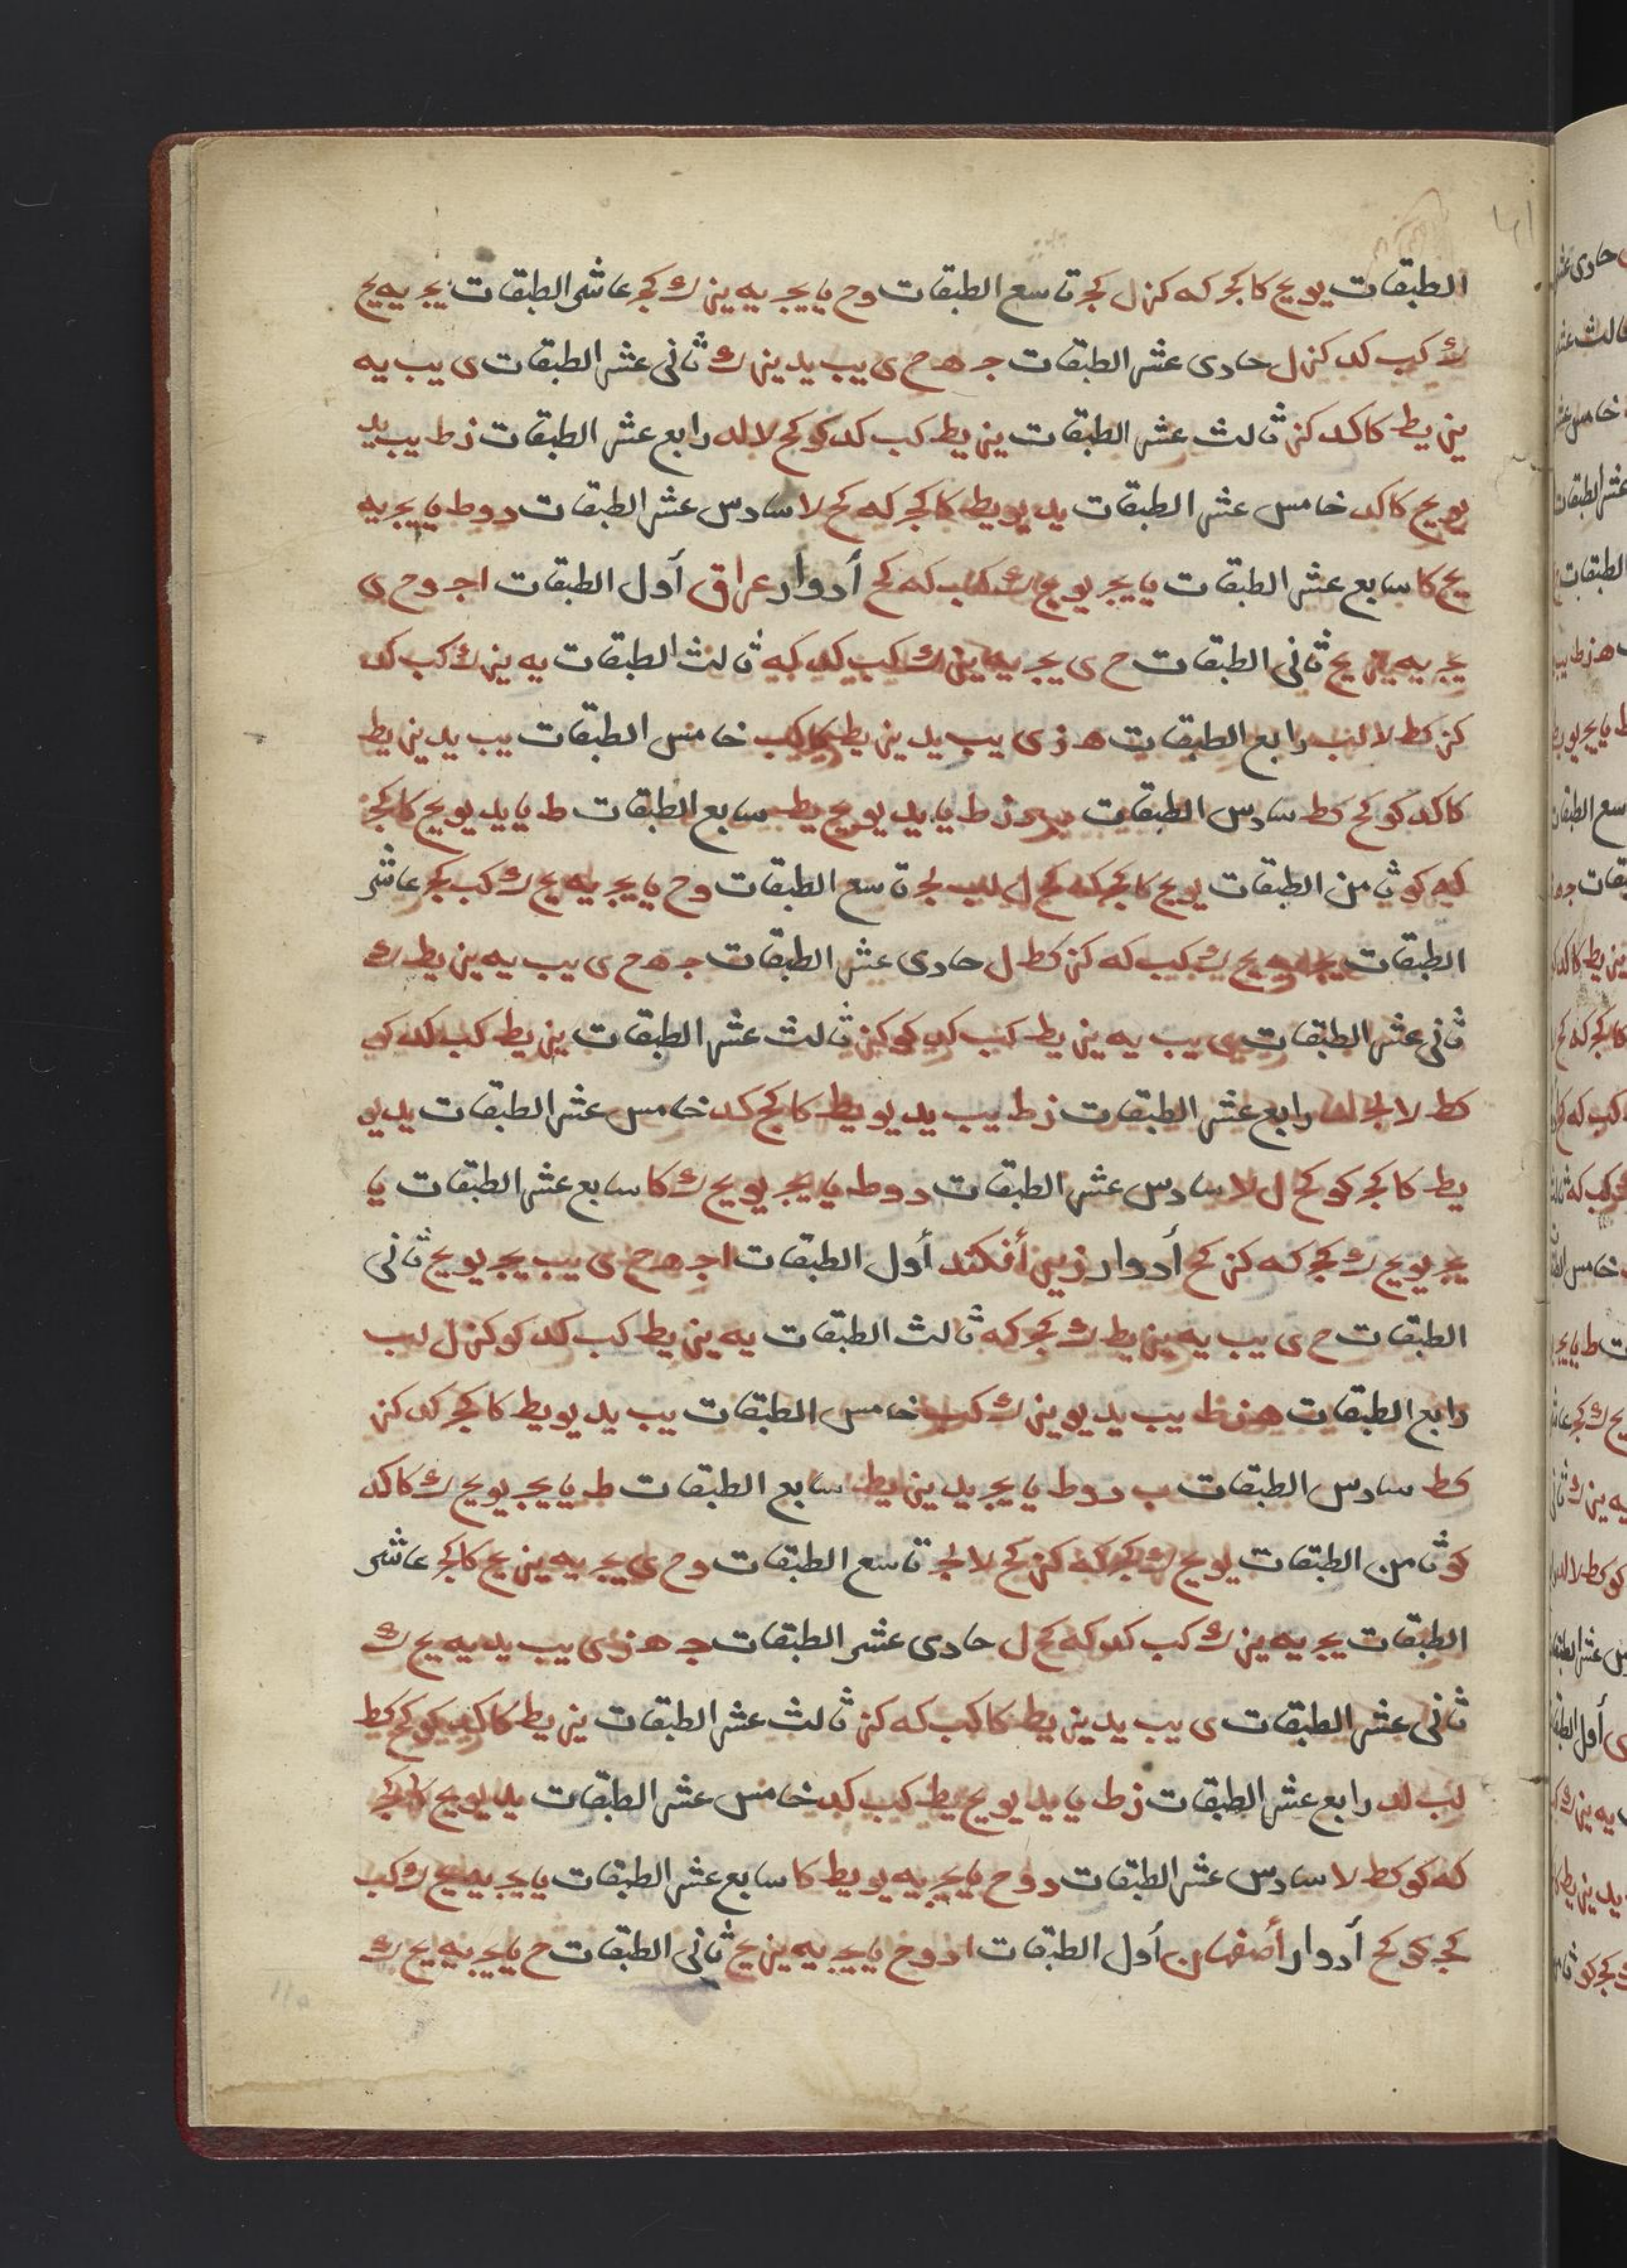 الطبقات يو يح كا كجر كه كز ل لجر تاسع الطبقات و ح يا يجر يه يز ك كجر عاشر الطبقات يجر يه يح
ك كب كد كز ل حادى عشر الطبقات جـ هـ ح ى يب يد يز ك ثانى عشر الطبقات ى يب يه
يز يط كا كد كز ثالث عشر الطبقات يز يط كب كد كو كح لا لد رابع عشر الطبقات ز ط يب يد
يو يح كا كد خامس عشر الطبقات يد يو يط كا كجر كه كح لا سادس عشر الطبقات د و ط يا يجر يه
يح كا سابع عشر الطبقات يا يجر يو يح ك كب كه كح أدوار عراق أول الطبقات ا جـ و ح ى
يجر يه يز يح ثانى الطبقات ح ى يجر يه يز ك كب كد كه ثالث الطبقات يه يز ك كب كد
كز كط لا لب رابع الطبقات هـ ز ى يب يد يز يط كا كب خامس الطبقات يب يد يز يط
كا كد كو كح كط سادس الطبقات ز ط يا يد يو يح يط سابع الطبقات ط يا يد يو يح كا كجر
كه كو ثامن الطبقات يو يح كا كجر كه كح ل لب لجر تاسع الطبقات و ح يا يجر يه يح ك كب كجر عاشر
الطبقات يجر يه يح ك كب كه كز كط ل حادى عشر الطبقات جـ هـ ح ى يب يه يز يط ك
ثانى عشر الطبقات ى يب يه يز يط كب كد كو كز ثالث عشر الطبقات يز يط كب كد كو
كط لا لجر لد رابع عشر الطبقات ز ط يب يد يو يط كا كجر كد خامس عشر الطبقات يد يو
يط كا كجر كو كح ل لا سادس عشر الطبقات د و ط يا يجر يو يح ك كا سابع عشر الطبقات يا
يجر يو يح ك كجر كه كز كح أدوار زير أفكند أول الطبقات ا جـ هـ ح ى يب يجر يو يح ثانى
الطبقات ح ى يب يه يز يط ك كجر كه ثالث الطبقات يه يز يط كب كد كو كز ل لب
رابع الطبقات هـ ز ط يب يد يو يز ك كب خامس الطبقات يب يد يو يط كا كجر كد كز
كط سادس الطبقات ب د و ط يا يجر يد يز يط سابع الطبقات ط يا يجر يو يح ك كا كد
كو ثامن الطبقات يو يح ك كجر كه كز كح لا لجر تاسع الطبقات و ح ى يجر يه يز يح كا كجر عاشر
الطبقات يجر يه يز ك كب كد كه كح ل حادى عشر الطبقات جـ هـ ز ى يب يد يه يح ك
ثانى عشر الطبقات ى يب يد يز يط كا كب كه كز ثالث عشر الطبقات يز يط كا كد كو كح كط
لب لد رابع عشر الطبقات ز ط يا يد يو يح يط كب كد خامس عشر الطبقات يد يو يح كا كجر
كه كو كط لا سادس عشر الطبقات د و ح يا يجر يه يو يط كا سابع عشر الطبقات يا يجر يه يح ك كب
كجر كو كح أدوار أصفهان أول الطبقات ا د و ح يا يجر يه يز يح ثانى الطبقات ح يا يجر يه يح ك